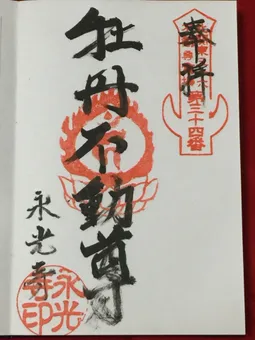 奉拝
第三十四番
牡丹不動尊
永光寺
永光寺印